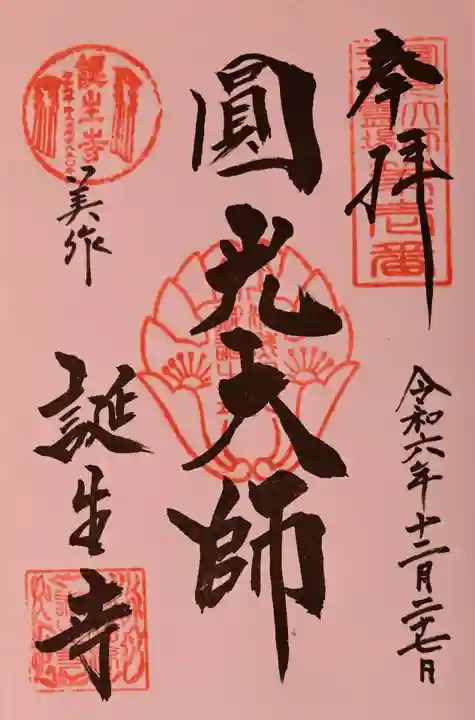 奉拝
令和六年十二月二十七日
圓光大師
美作
誕生寺
誕生寺